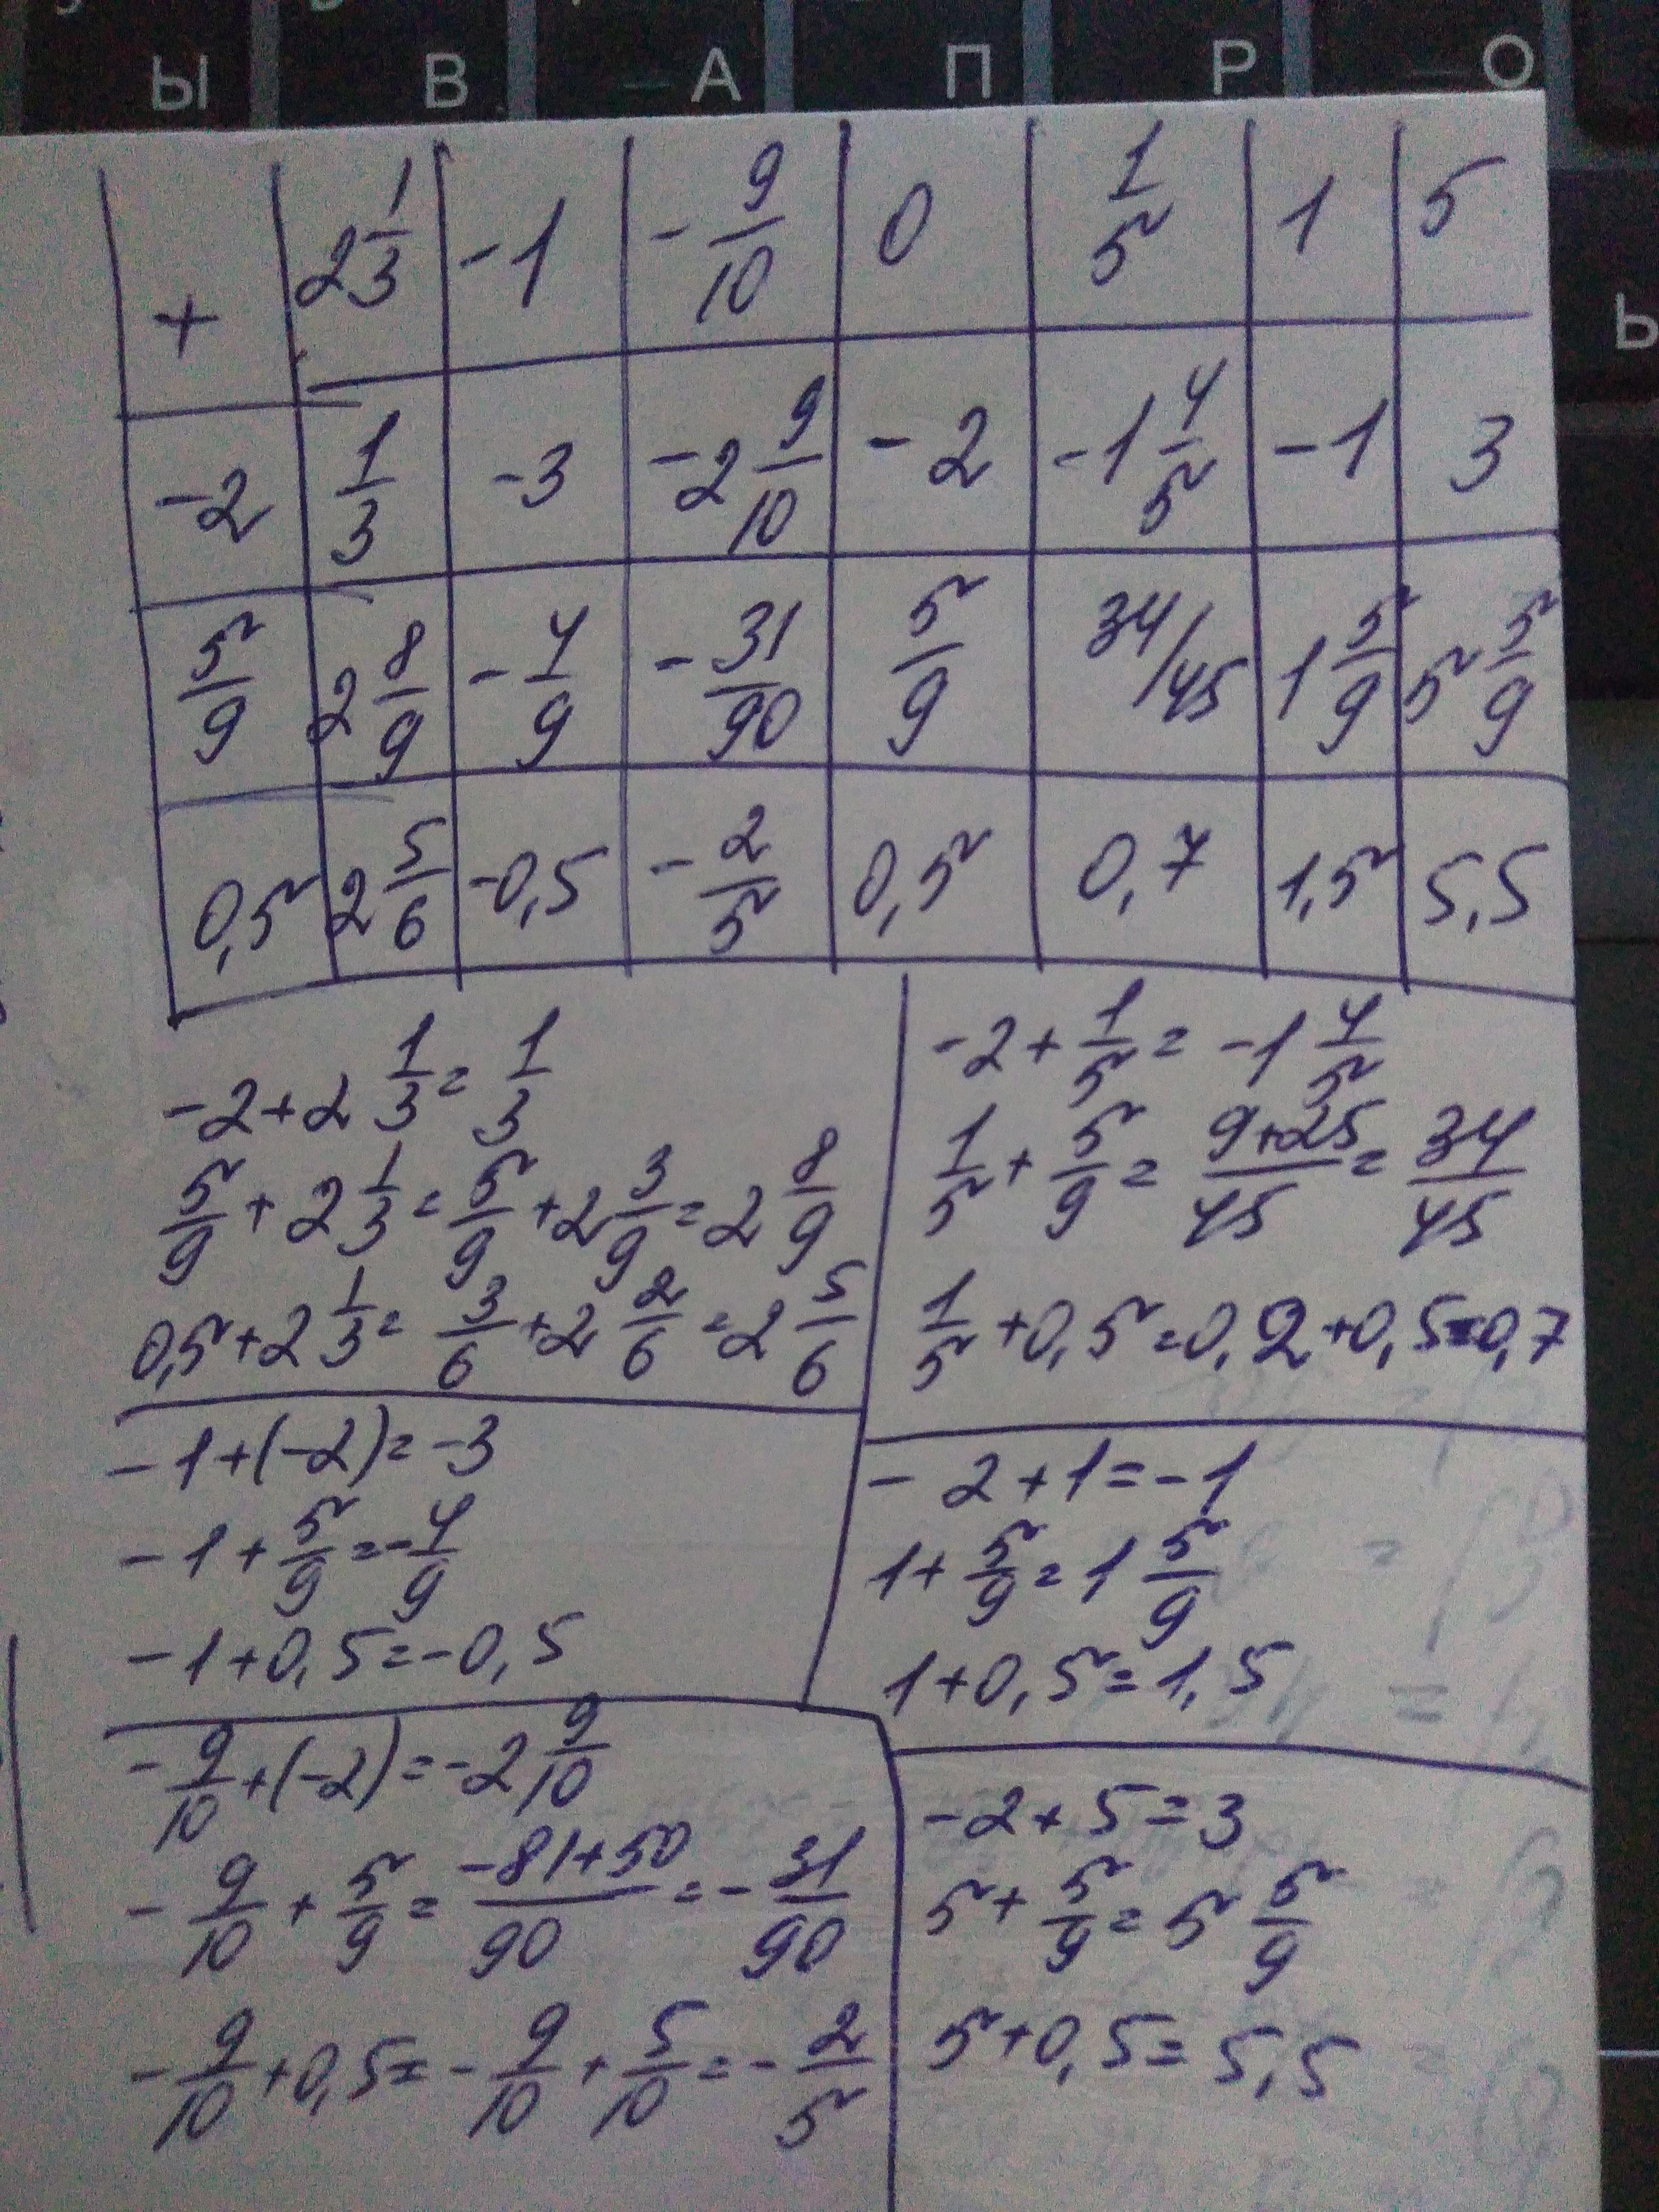 Ы В А П Р О
Ь
+ 2 1/3 -1 -9/10 0 1/5 1 5
-2 1/3 -3 -2 9/10 -2 -1 4/5 -1 3
5/9 2 8/9 -4/9 -31/90 5/9 34/45 1 5/9 5 5/9
0,5 2 5/6 -0,5 -2/5 0,5 0,7 1,5 5,5
-2+2 1/3=1/3
5/9+2 1/3=5/9+2 3/9=2 8/9
0,5+2 1/3=3/6+2 2/6=2 5/6
-1+(-2)=-3
-1+5/9=-4/9
-1+0,5=-0,5
-9/10+(-2)=-2 9/10
-9/10+5/9=(-81+50)/90=-31/90
-9/10+0,5=-9/10+5/10=-2/5
-2+1/5=-1 4/5
1/5+5/9=(9+25)/45=34/45
1/5+0,5=0,2+0,5=0,7
-2+1=-1
1+5/9=1 5/9
1+0,5=1,5
-2+5=3
5+5/9=5 5/9
5+0,5=5,5